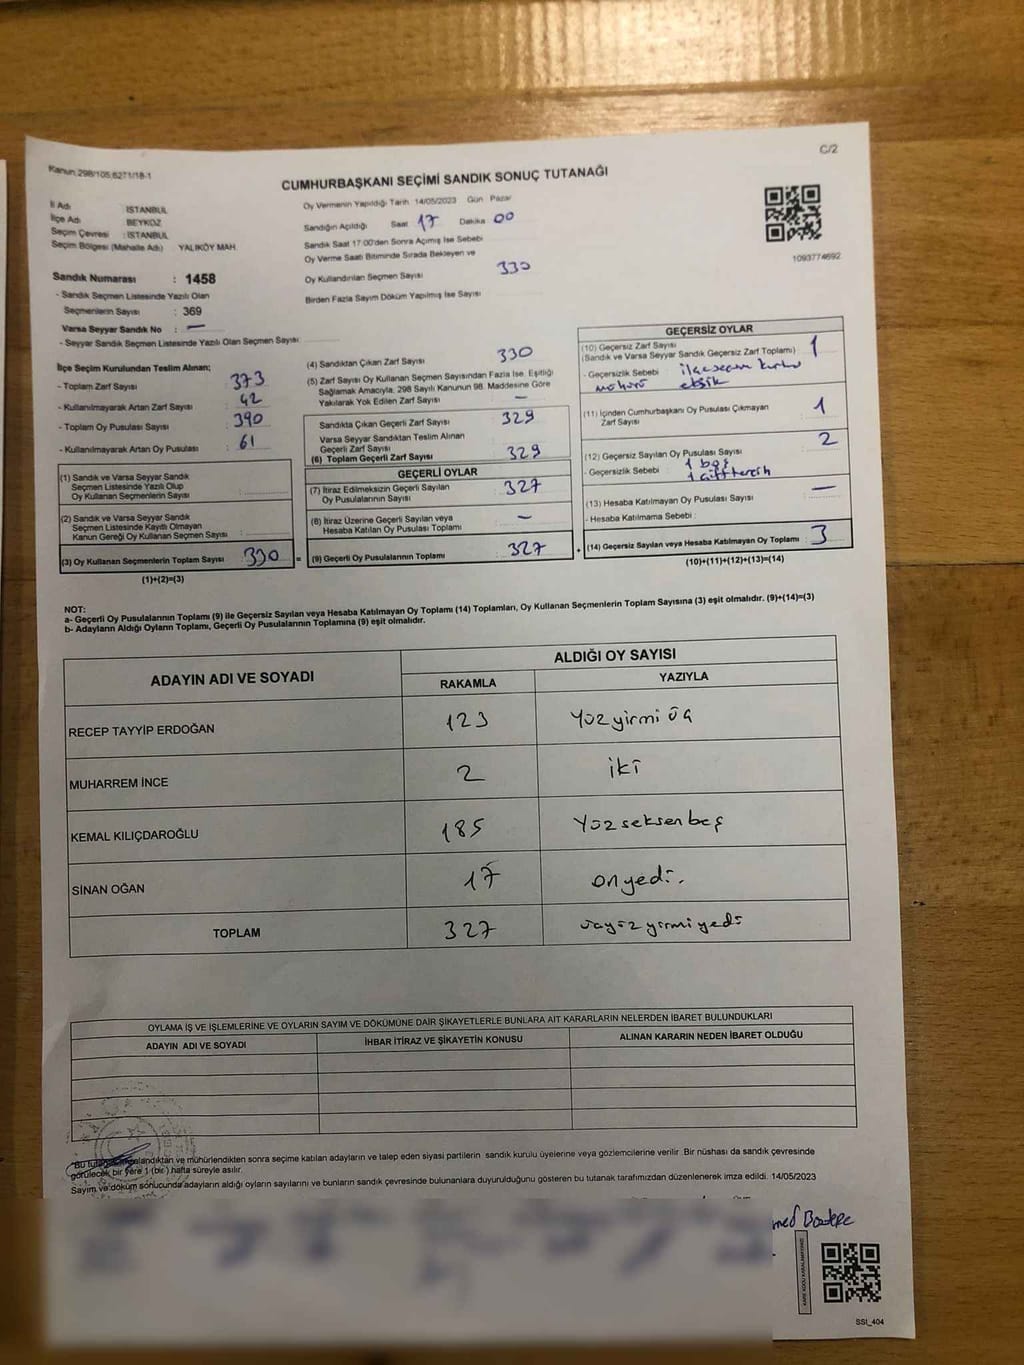 Kanun:298/105;6271/18-1
C/2
CUMHURBAŞKANI SEÇİMİ SANDIK SONUÇ TUTANAĞI
İl Adı : İSTANBUL
İlçe Adı : BEYKOZ
Seçim Çevresi : İSTANBUL
Seçim Bölgesi (Mahalle Adı) YALIKÖY MAH.
Oy Vermenin Yapıldığı Tarih 14/05/2023 Gün Pazar
Sandığın Açıldığı Saat 17 Dakika 00
Sandık Saat 17:00'den Sonra Açılmış İse Sebebi
Oy Verme Saati Bitiminde Sırada Bekleyen ve
Oy Kullandırılan Seçmen Sayısı 330
Birden Fazla Sayım Döküm Yapılmış İse Sayısı
1093774692
Sandık Numarası : 1458
- Sandık Seçmen Listesinde Yazılı Olan
Seçmenlerin Sayısı : 369
Varsa Seyyar Sandık No : —
- Seyyar Sandık Seçmen Listesinde Yazılı Olan Seçmen Sayısı :
İlçe Seçim Kurulundan Teslim Alınan;
- Toplam Zarf Sayısı : 373
- Kullanılmayarak Artan Zarf Sayısı : 42
- Toplam Oy Pusulası Sayısı : 390
- Kullanılmayarak Artan Oy Pusulası : 61
(1) Sandık ve Varsa Seyyar Sandık
Seçmen Listesinde Yazılı Olup
Oy Kullanan Seçmenlerin Sayısı :
(2) Sandık ve Varsa Seyyar Sandık
Seçmen Listesinde Kayıtlı Olmayan
Kanun Gereği Oy Kullanan Seçmen Sayısı :
(3) Oy Kullanan Seçmenlerin Toplam Sayısı : 330
(1)+(2)=(3)
(4) Sandıktan Çıkan Zarf Sayısı : 330
(5) Zarf Sayısı Oy Kullanan Seçmen Sayısından Fazla İse, Eşitliği
Sağlamak Amacıyla, 298 Sayılı Kanunun 98. Maddesine Göre
Yakılarak Yok Edilen Zarf Sayısı : —
Sandıkta Çıkan Geçerli Zarf Sayısı : 329
Varsa Seyyar Sandıktan Teslim Alınan
Geçerli Zarf Sayısı
(6) Toplam Geçerli Zarf Sayısı : 329
GEÇERLİ OYLAR
(7) İtiraz Edilmeksizin Geçerli Sayılan
Oy Pusulalarının Sayısı : 327
(8) İtiraz Üzerine Geçerli Sayılan veya
Hesaba Katılan Oy Pusulası Toplamı : —
= (9) Geçerli Oy Pusulalarının Toplamı : 327
GEÇERSİZ OYLAR
(10) Geçersiz Zarf Sayısı
(Sandık ve Varsa Seyyar Sandık Geçersiz Zarf Toplamı) : 1
- Geçersizlik Sebebi : ilçe seçim kurulu
mührü eksik
(11) İçinden Cumhurbaşkanı Oy Pusulası Çıkmayan
Zarf Sayısı : 1
(12) Geçersiz Sayılan Oy Pusulası Sayısı : 2
- Geçersizlik Sebebi : 1 boş
1 çift tercih
(13) Hesaba Katılmayan Oy Pusulası Sayısı : —
- Hesaba Katılmama Sebebi :
+ (14) Geçersiz Sayılan veya Hesaba Katılmayan Oy Toplamı : 3
(10)+(11)+(12)+(13)=(14)
NOT:
a- Geçerli Oy Pusulalarının Toplamı (9) ile Geçersiz Sayılan veya Hesaba Katılmayan Oy Toplamı (14) Toplamları, Oy Kullanan Seçmenlerin Toplam Sayısına (3) eşit olmalıdır. (9)+(14)=(3)
b- Adayların Aldığı Oyların Toplamı, Geçerli Oy Pusulalarının Toplamına (9) eşit olmalıdır.
ADAYIN ADI VE SOYADI
ALDIĞI OY SAYISI
RAKAMLA YAZIYLA
RECEP TAYYİP ERDOĞAN 123 Yüz yirmi üç
MUHARREM İNCE 2 iki
KEMAL KILIÇDAROĞLU 185 Yüz seksen beş
SİNAN OĞAN 17 on yedi.
TOPLAM 327 üçyüz yirmi yedi
OYLAMA İŞ VE İŞLEMLERİNE VE OYLARIN SAYIM VE DÖKÜMÜNE DAİR ŞİKAYETLERLE BUNLARA AİT KARARLARIN NELERDEN İBARET BULUNDUKLARI
ADAYIN ADI VE SOYADI İHBAR İTİRAZ VE ŞİKAYETİN KONUSU ALINAN KARARIN NEDEN İBARET OLDUĞU
Bu ve mühürlendikten sonra seçime katılan adayların ve talep eden siyasi partilerin sandık kurulu üyelerine veya gözlemcilerine verilir. Bir nüshası da sandık çevresinde
görülecek bir yere 1 (bir) hafta süreyle asılır.
Sayım ve döküm sonucunda adayların aldığı oyların sayılarını ve bunların sandık çevresinde bulunanlara duyurulduğunu gösteren bu tutanak tarafımızdan düzenlenerek imza edildi. 14/05/2023
SSI_404